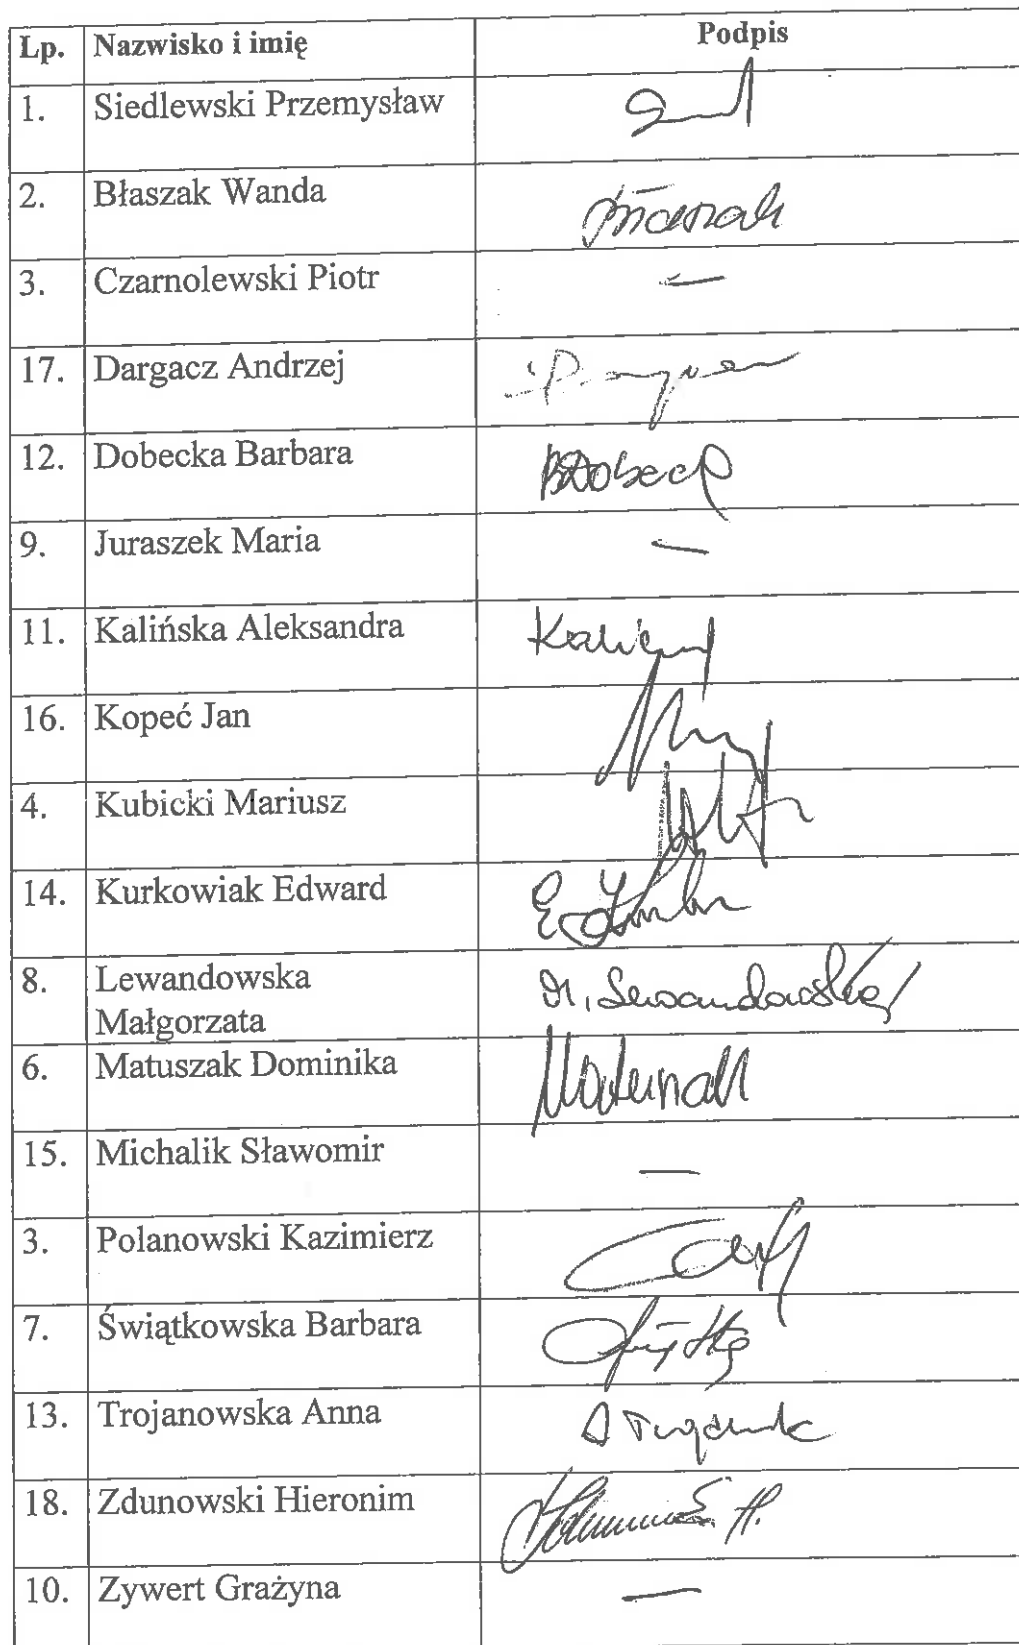 Lp. Nazwisko i imię Podpis
1. Siedlewski Przemysław
2. Błaszak Wanda
3. Czarnolewski Piotr —
17. Dargacz Andrzej
12. Dobecka Barbara
9. Juraszek Maria —
11. Kalińska Aleksandra
16. Kopeć Jan
4. Kubicki Mariusz
14. Kurkowiak Edward
8. Lewandowska M. Lewandowska
Małgorzata
6. Matuszak Dominika
15. Michalik Sławomir —
3. Polanowski Kazimierz
7. Świątkowska Barbara
13. Trojanowska Anna
18. Zdunowski Hieronim
10. Zywert Grażyna —